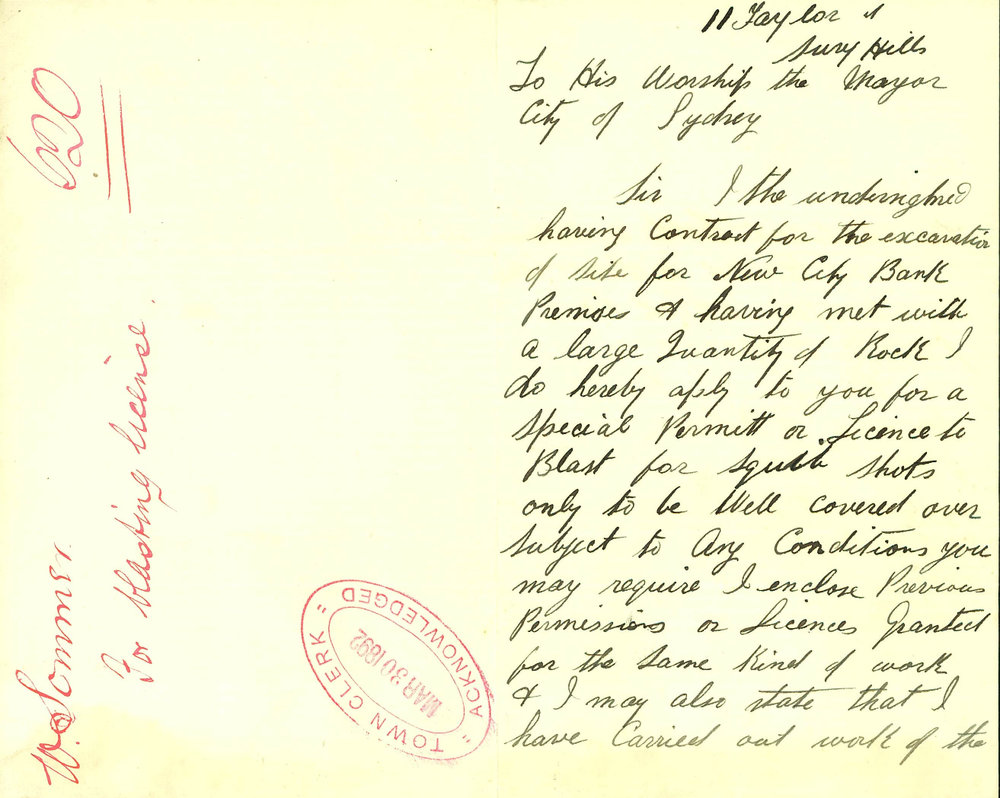 620
W. Sommer.
For blasting license.
"TOWN CLERK"
MAR 30 1892
ACKNOWLEDGED
11 Taylor st
Sury Hills
To His Worship the Mayor
City of Sydney
Sir I the undersighned
having Contract for the excavation
of site for New City Bank
Premises & having met with
a large Quantity of Rock I
do hereby apply to you for a
special Permitt or Licence to
Blast for squib shots
only to be Well covered over
subject to Any Conditions you
may require I enclose Previous
Permissions or Licences Granted
for the same kind of work
& I may also state that I
have Carried out work of the